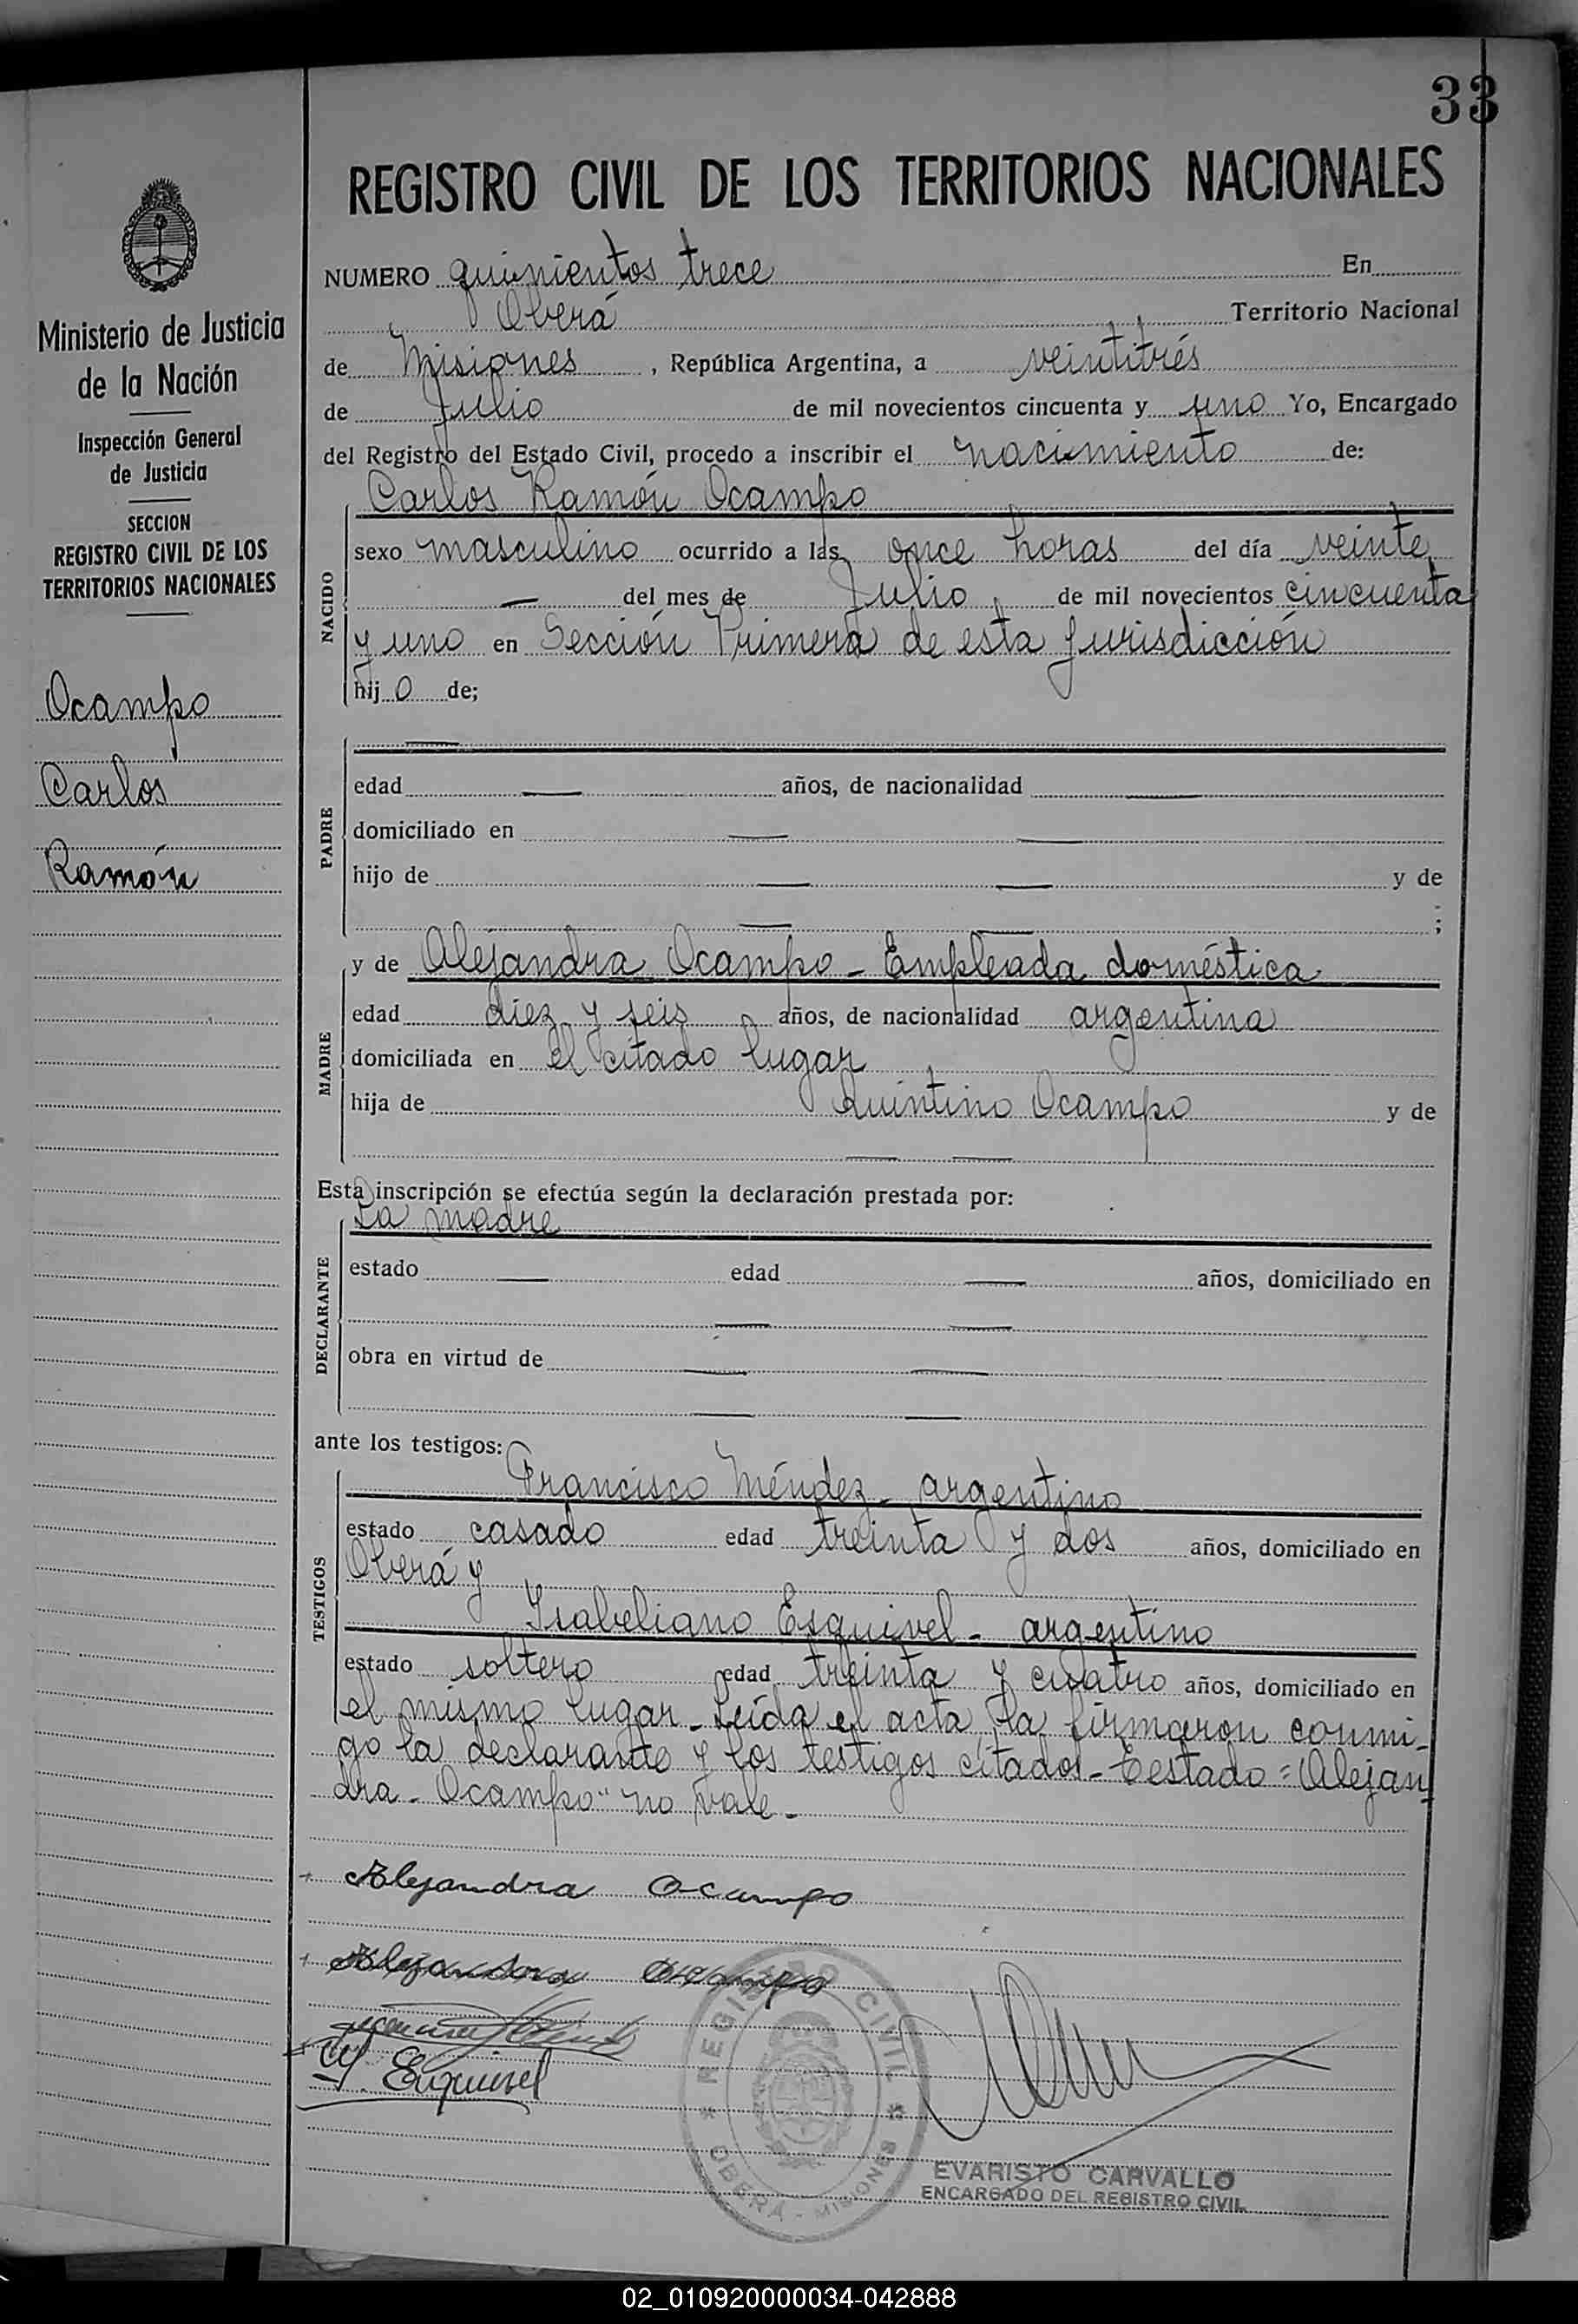 33
REGISTRO CIVIL DE LOS TERRITORIOS NACIONALES
Ministerio de Justicia
de la Nación
Inspección General
de Justicia
SECCION
REGISTRO CIVIL DE LOS
TERRITORIOS NACIONALES
Ocampo
Carlos
Ramón
NUMERO quinientos trece En
Oberá Territorio Nacional
de Misiones, República Argentina, a veintitrés
de Julio de mil novecientos cincuenta y uno Yo, Encargado
del Registro del Estado Civil, procedo a inscribir el nacimiento de:
Carlos Ramón Ocampo
NACIDO
sexo masculino ocurrido a las once horas del día veinte
— del mes de Julio de mil novecientos cincuenta
y uno en Sección Primera de esta Jurisdicción
hijo de;
PADRE
—
edad — años, de nacionalidad —
domiciliado en — —
hijo de — — y de
— — ;
MADRE
y de Alejandra Ocampo - Empleada doméstica
edad diez y seis años, de nacionalidad argentina
domiciliada en el citado lugar
hija de Quintino Ocampo y de
— —
Esta inscripción se efectúa según la declaración prestada por:
DECLARANTE
La madre
estado — edad — años, domiciliado en
— —
obra en virtud de — —
— —
ante los testigos:
TESTIGOS
Francisco Méndez - argentino
estado casado edad treinta y dos años, domiciliado en
Oberá y
Ysabeliano Esquivel - argentino
estado soltero edad treinta y cuatro años, domiciliado en
el mismo lugar - Leída el acta, la firmaron conmi-
go la declarante y los testigos citados - Testado = Alejan-
dra - Ocampo" no vale -
+ Alejandra Ocampo
+ Alejandra Ocampo
Y. Esquivel
REGISTRO CIVIL
* OBERÁ - MISIONES *
EVARISTO CARVALLO
ENCARGADO DEL REGISTRO CIVIL
02_010920000034-042888